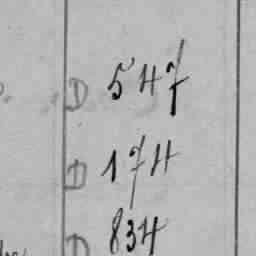 D 547
D 174
D 834